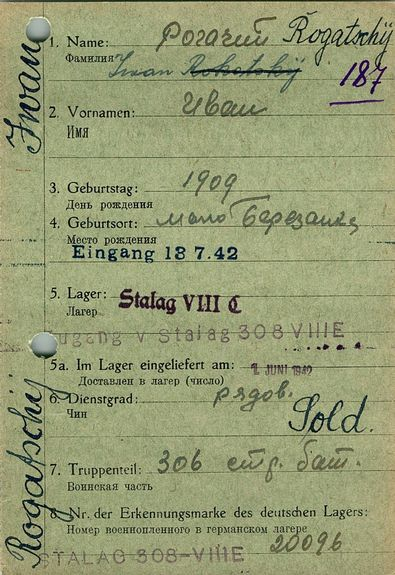 1. Name: Рогачий Rogatschij
Фамилия Iwan Rokotskij
187
2. Vornamen: Иван
Имя
3. Geburtstag: 1909
День рождения
4. Geburtsort: мало Березанка
Место рождения
Eingang 18 7.42
5. Lager: Stalag VIII C
Лагер
Zugang v Stalag 308 VIIIE
5a. Im Lager eingeliefert am: 1. JUNI 1942
Доставлен в лагер (число)
6. Dienstgrad: рядов.
Чин
Sold.
7. Truppenteil: 306 стр. бат.
Воинская часть
8. Nr. der Erkennungsmarke des deutschen Lagers:
Номер военнопленного в германском лагере
20096
STALAG 308-VIIIE
Rogatschij
Iwan